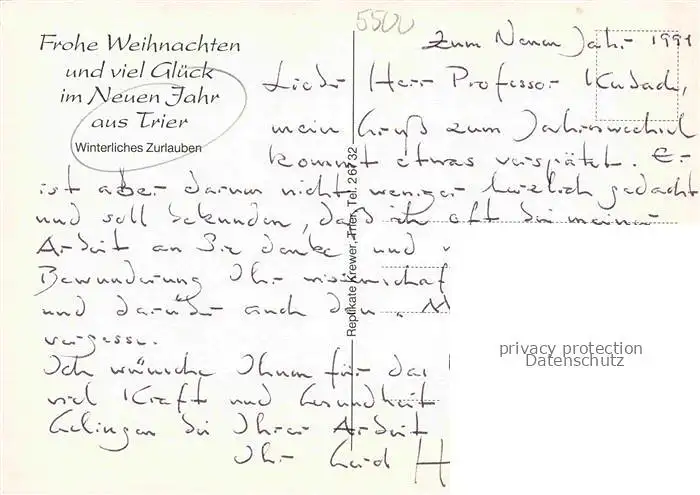 5500
Frohe Weihnachten
und viel Glück
im Neuen Jahr
aus Trier
Winterliches Zurlauben
Replikate Krewer, Trier, Tel. 26732
Zum Neuen Jahr 1991
Lieber Herr Professor Kusch,
mein Gruß zum Jahreswechsel
kommt etwas verspätet. Er
ist aber darum nicht weniger herzlich gedacht
und soll bekunden, daß ich oft bei meiner
Arbeit an Sie denke und
Bewunderung Ihr
und darüber auch den „M
vergesse.
Ich wünsche Ihnen für das
viel Kraft und Gesundheit
Gelingen bei Ihrer Arbeit
Ihr Gerd H
privacy protection
Datenschutz